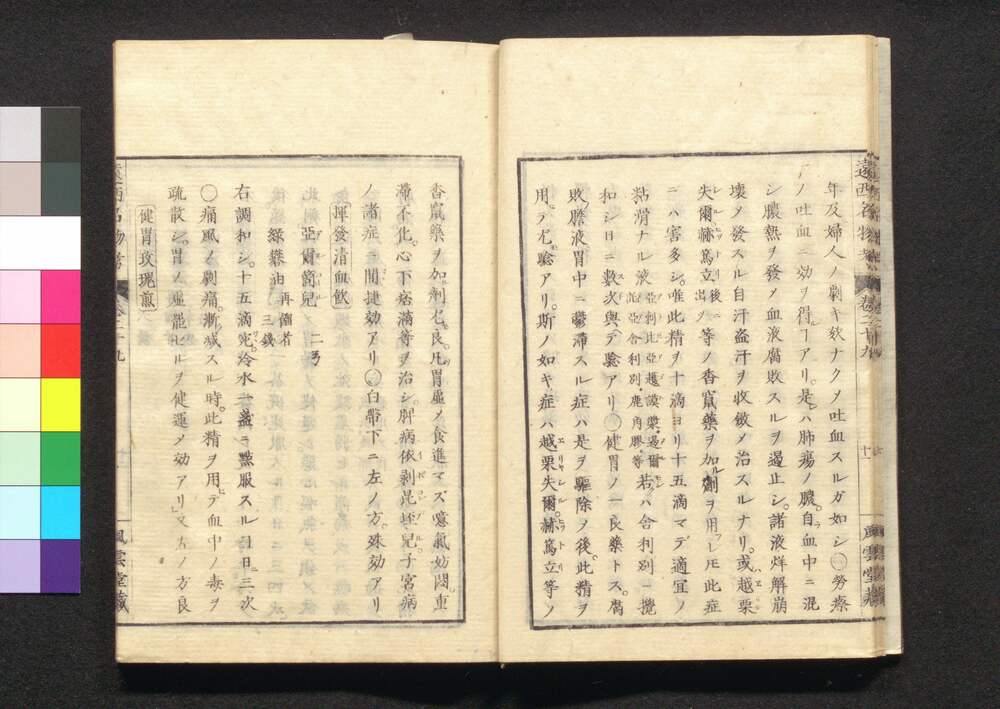 遠西名物考 巻二十九 十一 風雲堂藏
年及婦人ノ劇キ欬ナクメ吐血スルガ如シ○勞瘵
ノ吐血ニ効ヲ得ルヿアリ是ハ肺瘍ノ膿自ラ血中ニ混
シ膿熱ヲ發メ血液腐敗スルヲ遏止シ諸液烊解崩
壞メ發スル自汗盗汗ヲ收斂メ治スルナリ或越栗
失爾赫篤立後ニ出ツ等ノ香竄藥ヲ加ヘ劑ヲ用フレㇳモ此症
ニハ害多シ唯此精ヲ十滴ヨリ十五滴マデ適宜ノ
黏滑ナル液亞剌比亞護謨漿遏爾託亞舎利別鹿角膠等若クハ舎利別ニ攪
和シ日ニ數次與ヘテ驗アリ○健胃ノ一良藥トス腐
敗膽液胃中ニ鬱滞スル症ハ是ヲ驅除ノ後此精ヲ
用ヒテ尤驗アリ斯ノ如キ症ハ越栗失爾赫篤立等ノ
香竄藥ヲ加ヘ劑シ良凡胃虛メ食進マズ噫氣妨悶重
滯不化心下痞滿等ヲ治シ脾病依剥昆垤兒子宮病
ノ諸症ニ間捷効アリ○白帶下ニ左ノ方殊効アリ
揮發清血飲
亞爾箇兒 二弓
緑礬油 再餾者 三錢
右調和シ十五滴宛冷水一盞ニ㸃服スルヿ日ニ三次
○痛風ノ劇痛漸減スル時此精ヲ用ヒテ血中ノ毒ヲ
疏散シ胃ノ虛罷セルヲ健運メ効アリ又左ノ方良
健胃玫瑰煎
風雲堂藏